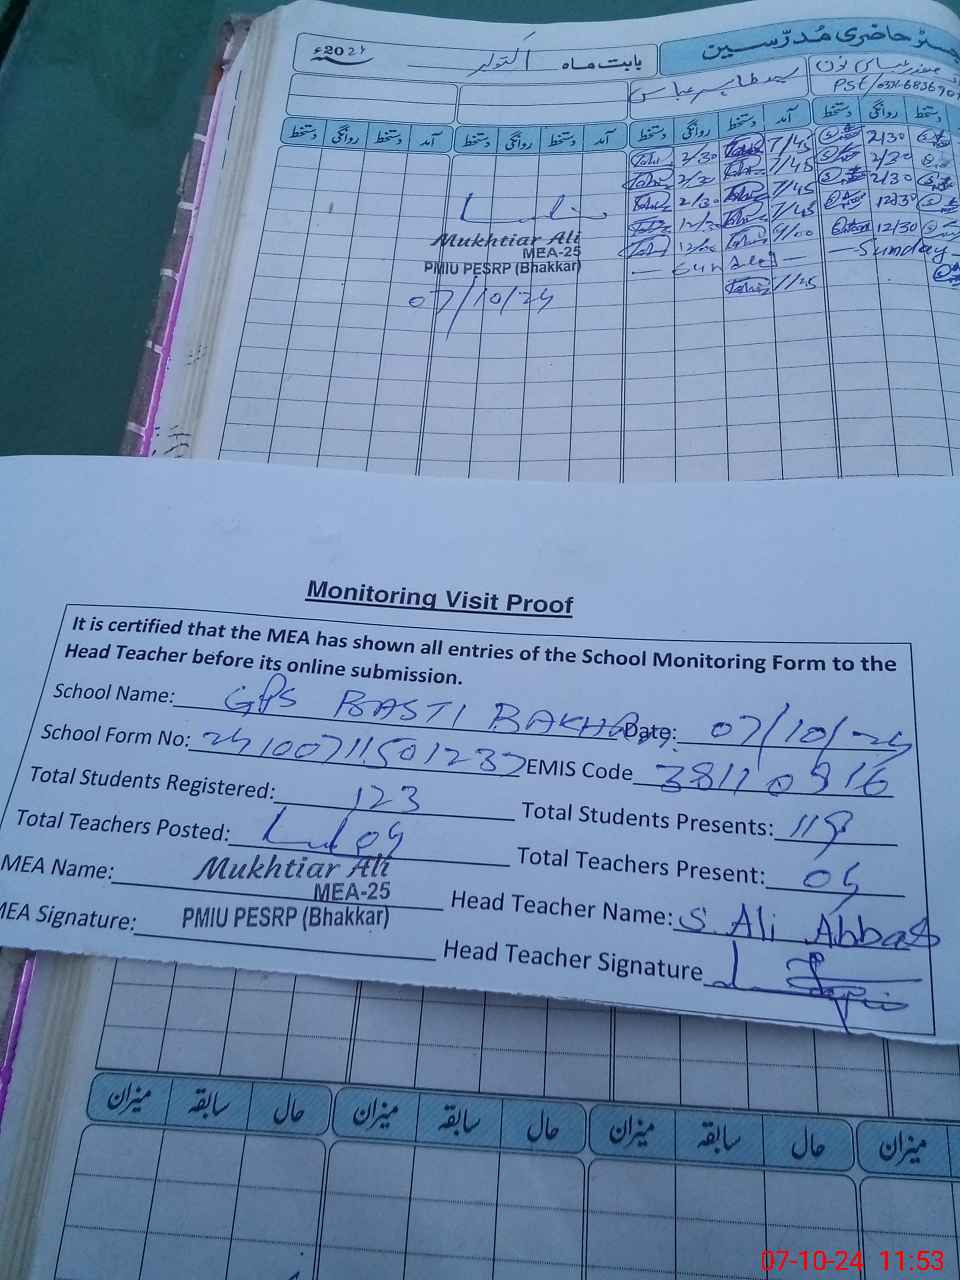 رجسٹر حاضری مُدرّسین
بابت ماہ اکتوبر
2024ء
سید طاہر عباس
PST/
آمد دستخط روانگی دستخط آمد دستخط روانگی دستخط آمد دستخط روانگی دستخط روانگی دستخط
7/45 2/30 2/30
7/45 2/30
7/45 2/30 2/30
7/45 12/30 12/30
9/00 12/30
Sunday Sunday
7/45
Mukhtiar Ali
MEA-25
PMIU PESRP (Bhakkar)
07/10/24
Monitoring Visit Proof
It is certified that the MEA has shown all entries of the School Monitoring Form to the
Head Teacher before its online submission.
School Name: GPS BASTI BAKHAR Date: 07/10/24
School Form No: 24100711501237 EMIS Code 38110916
Total Students Registered: 123 Total Students Presents: 119
Total Teachers Posted: 04 Total Teachers Present: 04
MEA Name: Mukhtiar Ali Head Teacher Name: S. Ali Abbas
MEA-25
MEA Signature: PMIU PESRP (Bhakkar) Head Teacher Signature
حال سابقہ میزان حال سابقہ میزان حال سابقہ میزان میزان
07-10-24 11:53